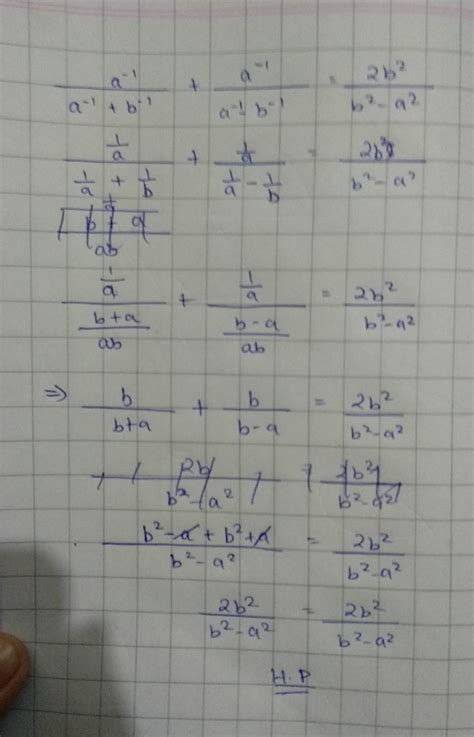 a⁻¹/(a⁻¹ + b⁻¹) + a⁻¹/(a⁻¹ - b⁻¹) = 2b²/(b² - a²)
(1/a)/(1/a + 1/b) + (1/a)/(1/a - 1/b) = 2b²/(b² - a²)
b + a/ab
(1/a)/((b+a)/ab) + (1/a)/((b-a)/ab) = 2b²/(b² - a²)
⇒ b/(b+a) + b/(b-a) = 2b²/(b² - a²)
2b/(b² - a²) 2b²/(b² - a²)
(b² - a + b² + a)/(b² - a²) = 2b²/(b² - a²)
2b²/(b² - a²) = 2b²/(b² - a²)
H.P